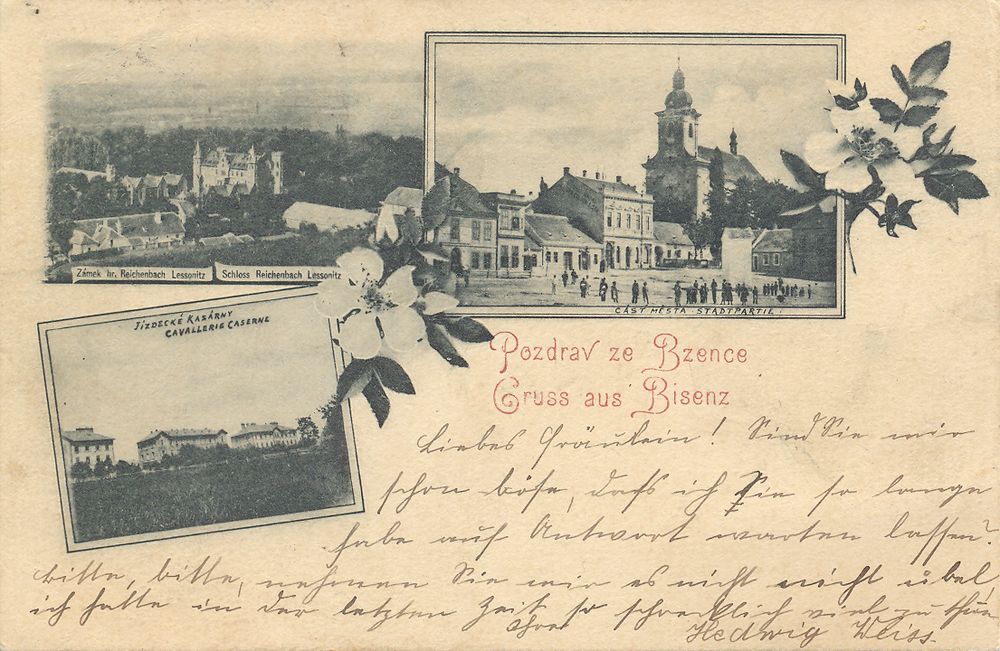 Zámek hr. Reichenbach Lessonitz
Schloss Reichenbach Lessonitz
ČÁST MĚSTA STADTPARTIE.
JÍZDECKÉ KASÁRNY
CAVALLERIE CASERNE
Pozdrav ze Bzence
Gruss aus Bisenz
Liebes Fräulein! Sind Sie mir
schon böse, daß ich Sie so lange
habe auf Antwort warten lassen?
bitte, bitte, nehmen Sie mir es nicht nicht übel,
ich hatte in der letzten Zeit so schrecklich viel zu thun
Ihre
Hedwig Weiss.